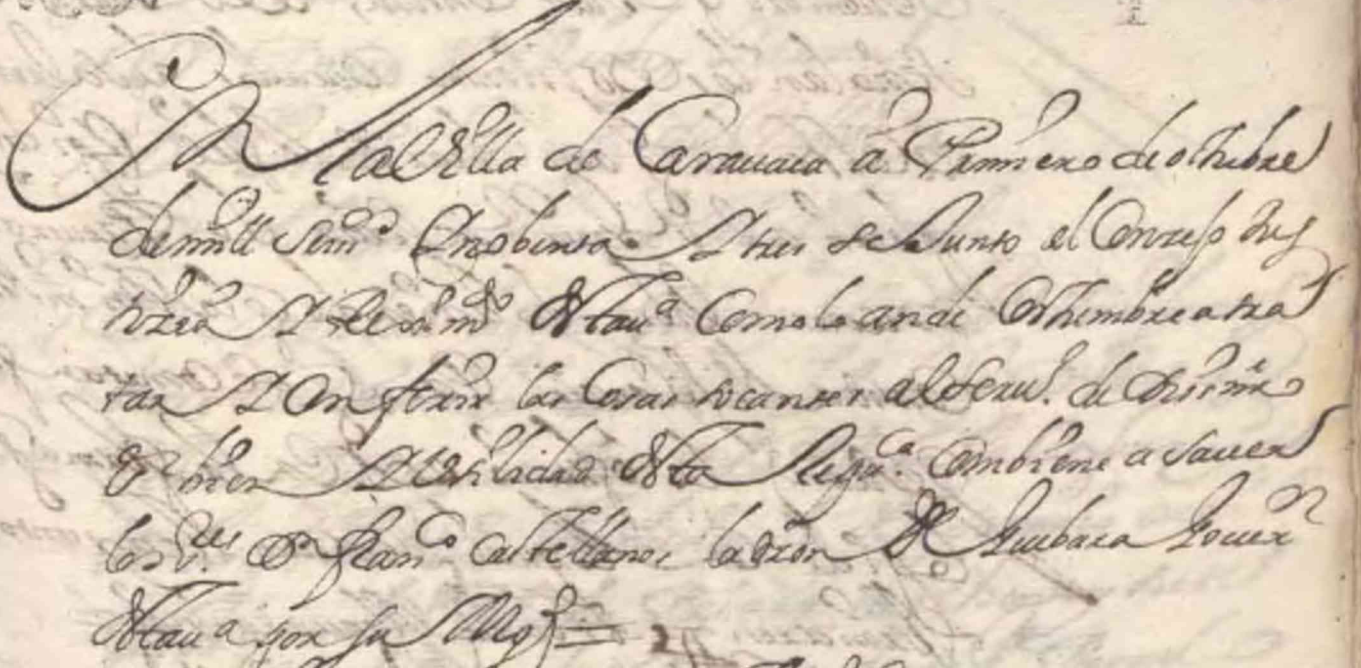 En la Villa de Caravaca a Primero de otubre
de mill seisos y nobenta y tres se Junto el Conzejo Jus
tizia y Reximto desta va Como lo an de Costhumbre a tra
tar y Conferir las Cosas tocantes al serui. de Dios nro
y bien y Utilidad desta Repuca Combiene a sauer
los res Dn Franco Castellanos ladron de Guebara Gouern
desta va por su Magd =